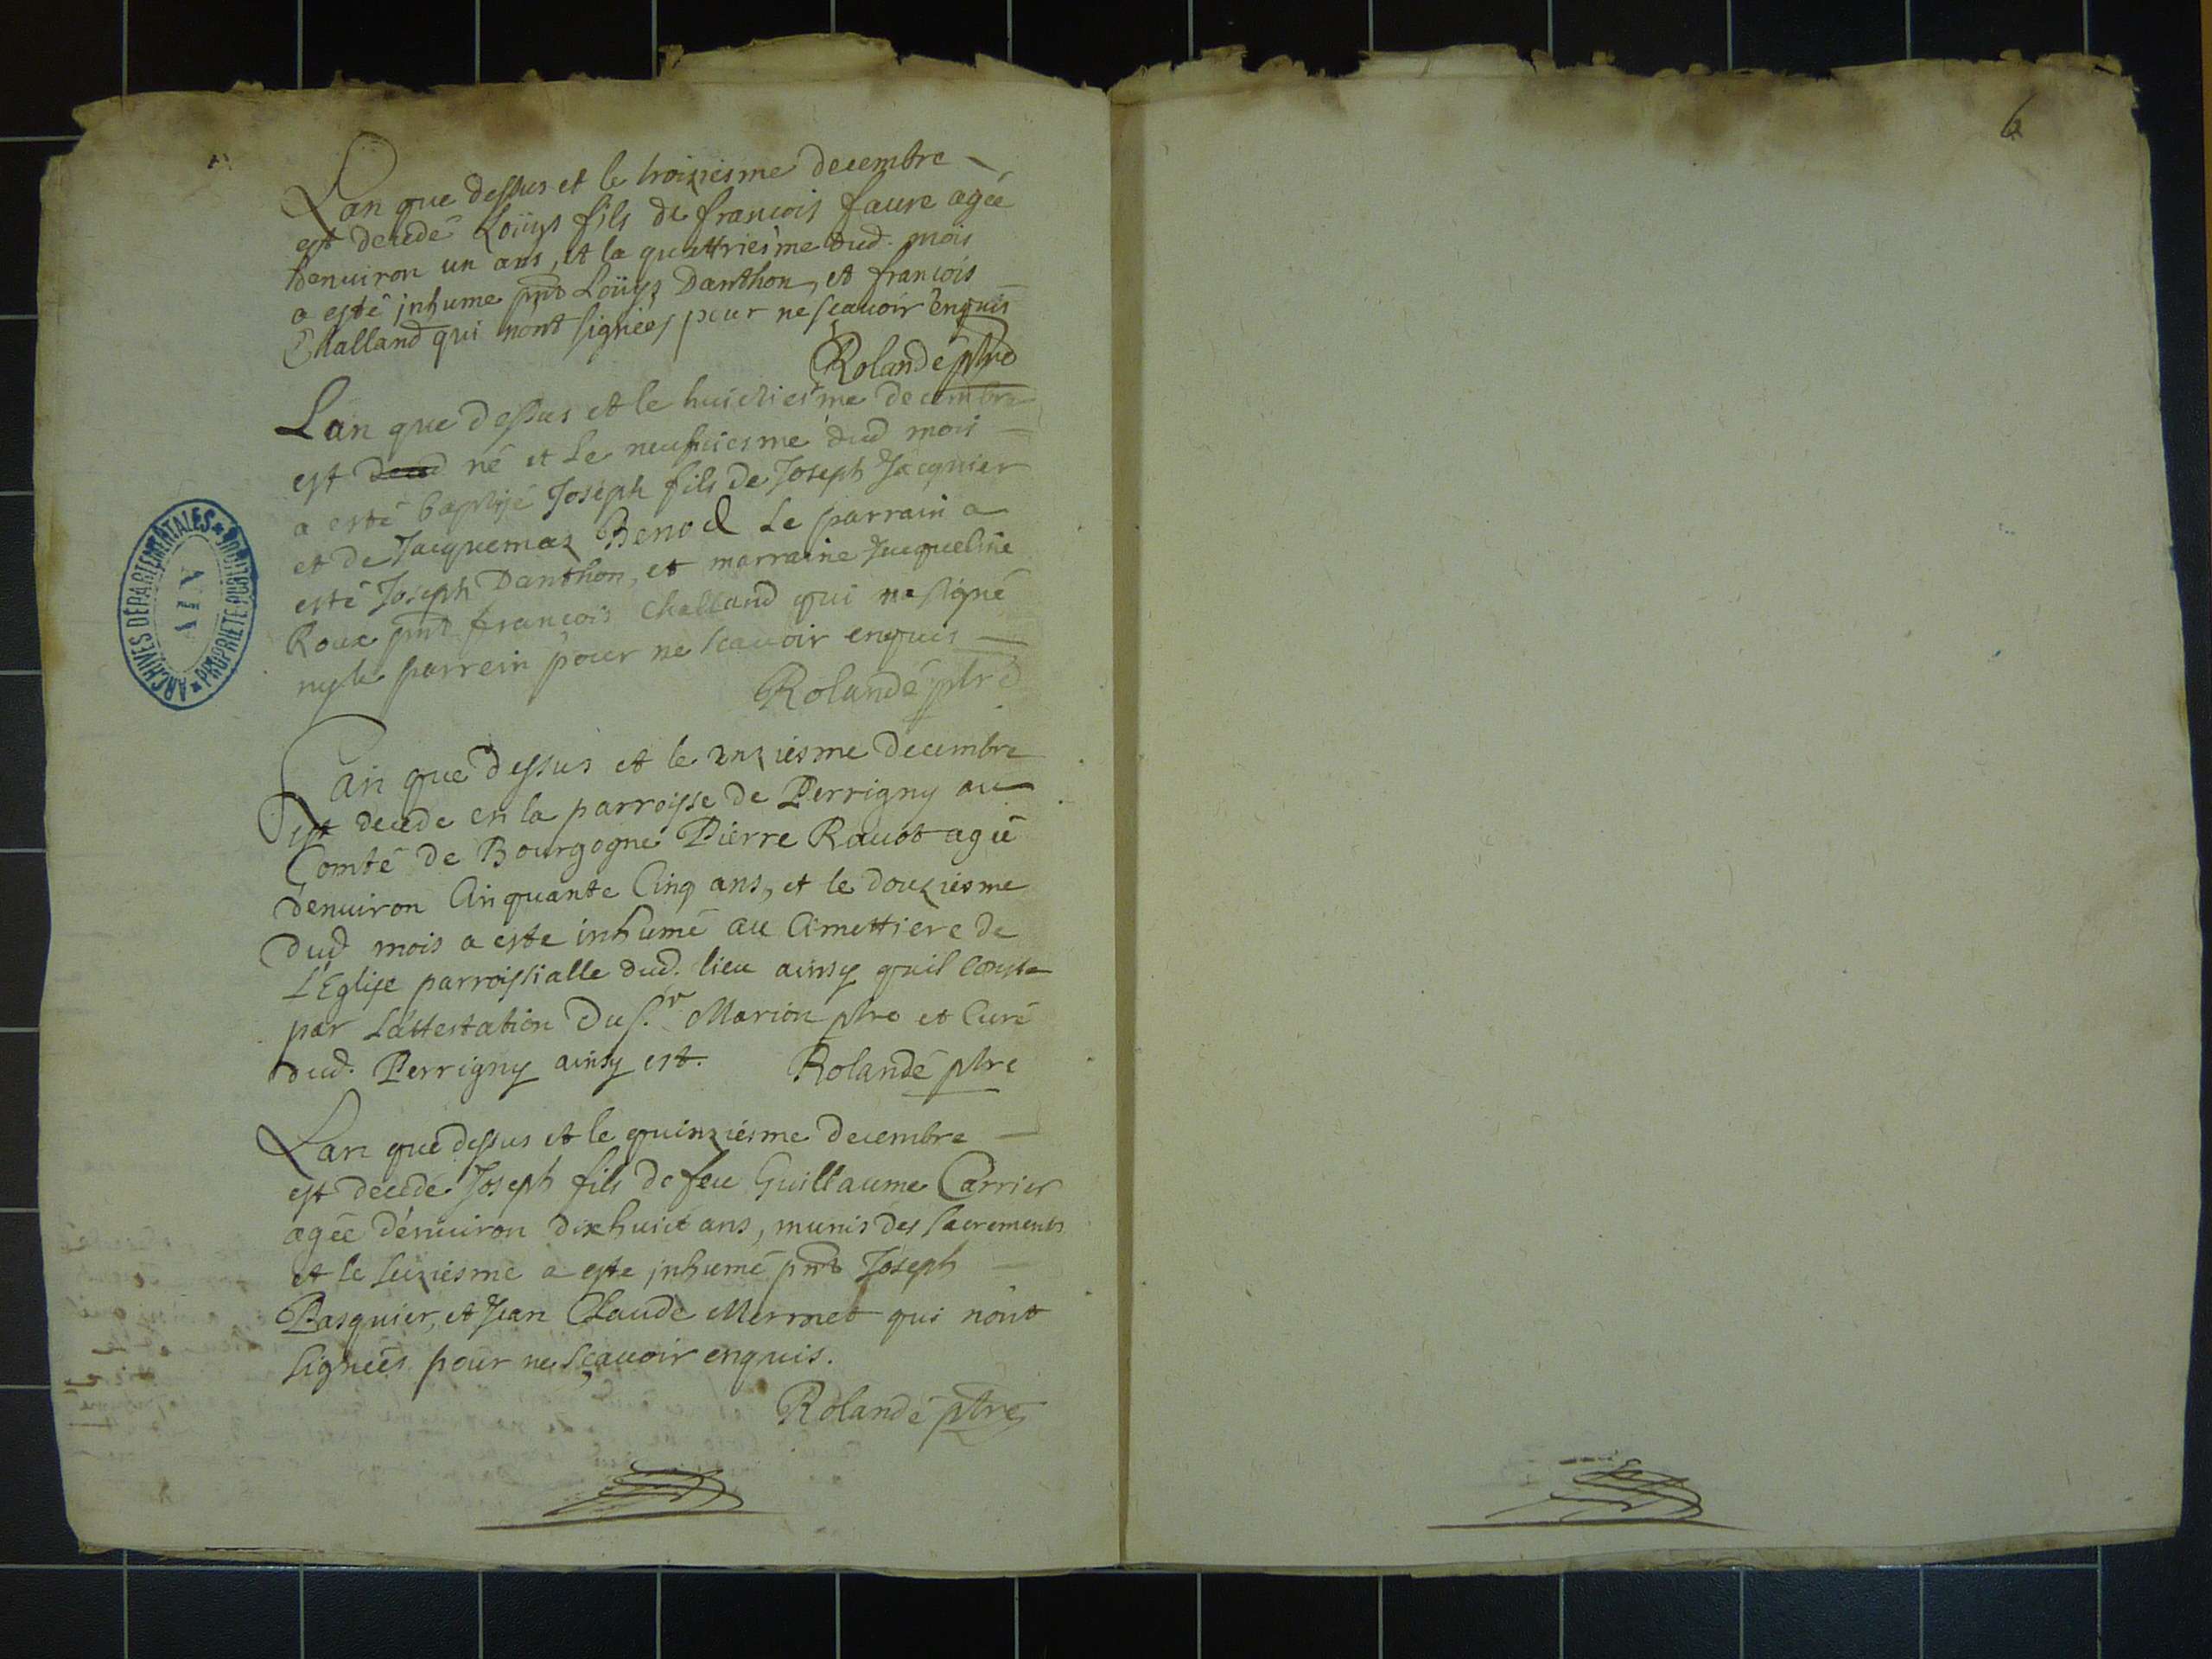 Lan que dessus et le troiziesme decembre
est decedé Loüys fils de francois faure agée
denuiron un ans, et la quattriesme dud. mois
a esté jnhume pnt Loüys Danthon, et francois
Challand qui nont signées pour ne scauoir enquis
Rolandé ptre
Lan que dessus et le huictiesme decembre
est deced né et le neufuiesme dud mois
a esté baptisé Joseph fils de Joseph Jacquier
et de Jacquemaz Benod Le parrain a
esté Joseph Danthon, et marraine Jacqueline
Roux pnt francois Challand qui na signé
ny le parrein pour ne scauoir enquis
Rolandé ptre
Lan que dessus et le unziesme decembre
est decede en la parroisse de Perrigny au
Comté de Bourgogne Pierre Rauot agé
denuiron Cinquante Cinq ans, et le douziesme
dud mois a este inhumé au Cimettiere de
L'Eglise parroissialle dud. lieu ainsy quil conste
par Lattestation du s.r Marion ptre et Curé
dud. Perrigny ainsy est. Rolandé ptre
Lan que dessus et le quinziesme decembre
est decedé Joseph fils de feu Guillaume Carrier
agée dénuiron dixhuict ans, munis des sacrements
et le seiziesme a este jnhumé pnt Joseph
Pasquier, et Jean Claude Mermet qui nont
signées pour ne sçauoir enquis.
Rolandé ptre
6
ARCHIVES DÉPARTEMENTALES
AIN
PROPRIÉTÉ PUBLIQUE